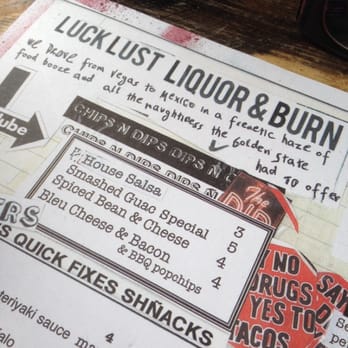 LUCK LUST LIQUOR & BURN
we drove from Vegas to Mexico in a frenetic haze of
food booze and all the naughtiness the Golden State
had to offer
CHIPS N DIPS DIPS N
CHIPS N DIPS DIPS N
House Salsa 3
Smashed Guac Special 5
Spiced Bean & Cheese 4
Bleu Cheese & Bacon 4
& BBQ popchips
The
ERS
S QUICK FIXES SHÑACKS
teriyaki sauce 4
SAY NO
DRUGS
YES TO
TACOS
SAY